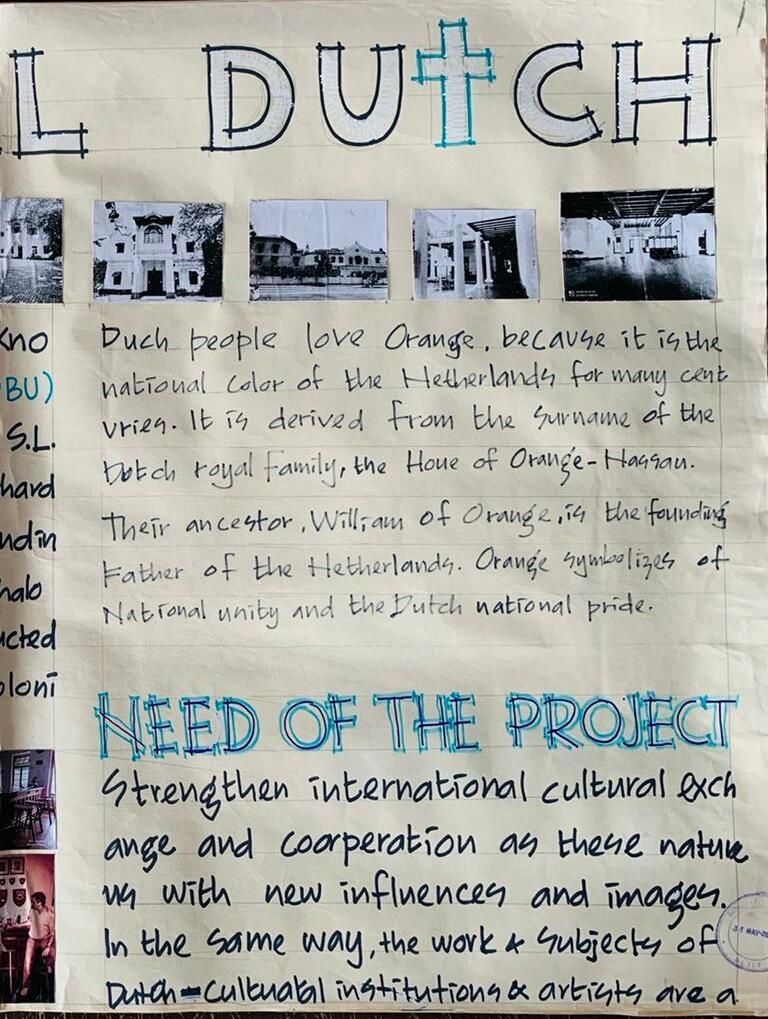 L DUTCH
kno
BU)
S.L.
hard
ndin
halo
ucted
oloni
Duch people love Orange, because it is the
national color of the Netherlands for many cent
uries. It is derived from the surname of the
Dutch royal family, the Houe of Orange-Nassau.
Their ancestor, William of Orange, is the founding
Father of the Netherlands. Orange symbolizes of
National unity and the Dutch national pride.
NEED OF THE PROJECT
Strengthen international cultural exch
ange and coorperation as these nature
us with new influences and images.
In the same way, the work & subjects of
Dutch = Cultuatal institutions & artists are a